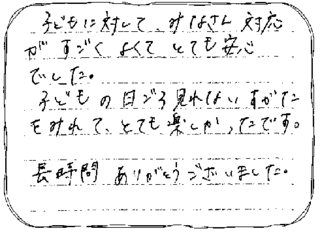 子どもに対して、みなさん対応
がすごくよくてとても安心
でした。
子どもの日ごろ見れないすがた
をみれて、とても楽しかったです。
長時間ありがとうございました。